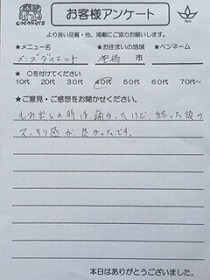 お客様アンケート
より良い品質・他、掲載にご協力お願いします。
★メニュー名 ★お住まいの地域 ★ペンネーム
ダイエット 市
★ ○を付けてください
10代 20代 30代 40代 50代 60代 70代~
★ご意見・ご感想をお聞かせください。
もみ出しの時は痛かったけど、終った後の
スッキリ感が良かったです。
本日はありがとうございました。